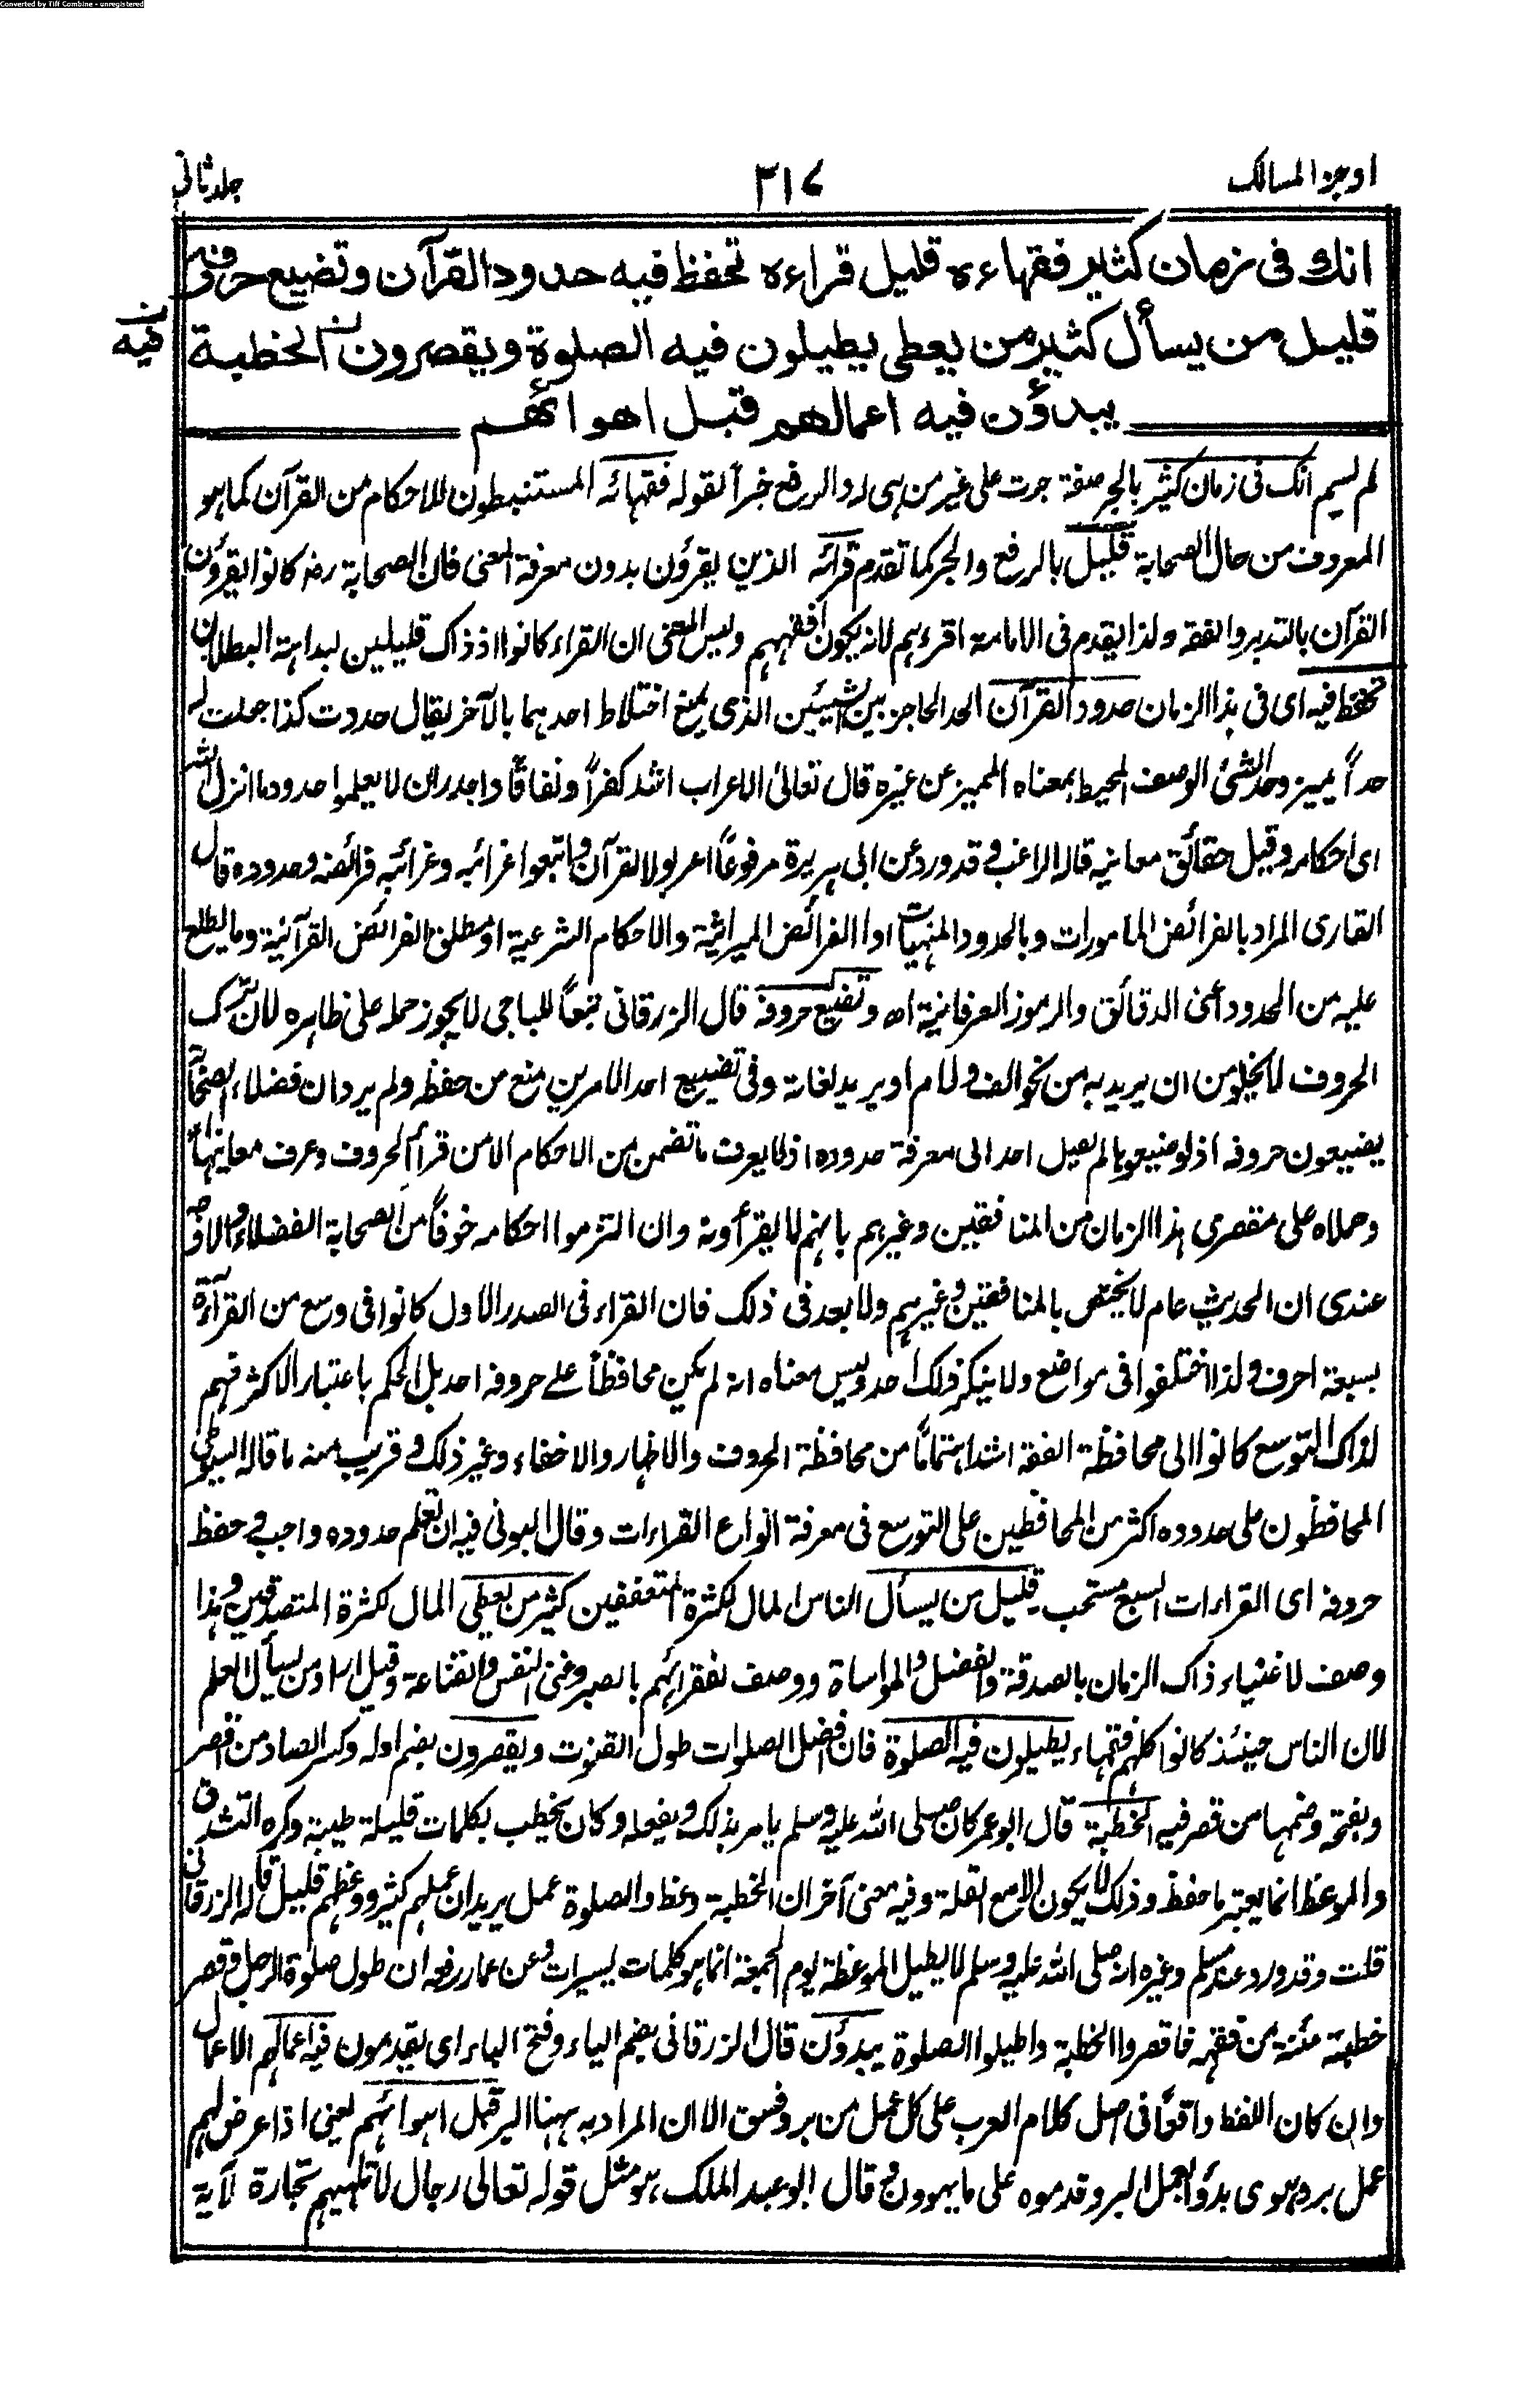 Converted by Tiff Combine - unregistered
اوجز المسالك
٣١٧
جلد ثانی
انك فی زمان كثير فقهاءه قليل قراءه تحفظ فيه حدود القرآن وتضيع حروفه
قليل من يسأل كثير من يعطی يطيلون فيه الصلوة ويقصرون الخطبة
فيه
يبدؤن فيه اعمالهم قبل اهوائهم
لم يسم انك فی زمان كثير بالجر صفة جرت علی غير من هی له والرفع خبراً لقوله فقهائه المستنبطون للاحكام من القرآن كما هو
المعروف من حال الصحابة قليل بالرفع والجر كما تقدم قرائه الذين يقرؤن بدون معرفة المعنی فان الصحابة رضه كانوا يقرؤن
القرآن بالتدبر والفقه ولذا يقدم فی الامامة اقرءهم لانه يكون افقههم وليس المعنی ان القراء كانوا اذ ذاك قليلين لبداهة البطلان
تحفظ فيه ای فی هذا الزمان حدود القرآن الحد الحاجز بين الشيئين الذی يمنع اختلاط احدهما بالآخر يقال حددت كذا جعلت له
حداً يميز وحد الشئ الوصف المحيط بمعناه المميز عن غيره قال تعالیٰ الاعراب اشد كفراً ونفاقاً واجدر ان لا يعلموا حدود ما انزل الله
ای احكامه وقيل حقائق معانيه قاله الراغب وقد ورد عن ابی هريرة مرفوعاً اعربوا القرآن واتبعوا غرائبه وغرائبه فرائضه وحدوده قال
القاری المراد بالفرائض المامورات وبالحدود المنهيات او الفرائض الميراثية والاحكام الشرعية او مطلق الفرائض القرآنية وما يطلع
عليه من الحدود اعنی الدقائق والرموز العرفانية اه وتضيع حروفه قال الزرقانی تبعاً للباجی لا يجوز حمله علی ظاهره لان ترك
الحروف لا يخلو من ان يريد به من نحو الف ولام او يريد لغاته وفی تضييع احد الامرين منع من حفظه ولم يرد ان فضلاء الصحابة
يضيعون حروفه اذ لو ضيعوها لم يصل احد الی معرفة حدوده اذ لا يعرف ما تضمن من الاحكام الا من قرأ الحروف وعرف معانيها
وحملاه علی مقصری هذا الزمان من المنافقين وغيرهم بانهم لا يقرأونه وان التزموا احكامه خوفاً من الصحابة الفضلاء والاوجه
عندی ان الحديث عام لا يختص بالمنافقين وغيرهم ولا بعد فی ذلك فان القراء فی الصدر الاول كانوا فی وسع من القراءة
بسبعة احرف ولذا اختلفوا فی مواضع ولا ينكر ذلك احد وليس معناه انه لم يكن محافظاً علے حروفه احد بل الحكم باعتبار الاكثر فهم
لذاك التوسع كانوا الی محافظة الفقه اشد اهتماماً من محافظة الحروف والاظهار والاخفاء وغير ذلك وقريب منه ما قاله السيوطی
المحافظون علی حدوده اكثر من المحافظين علی التوسع فی معرفة انواع القراءات وقال البونی فيه ان تعلم حدوده واجب وحفظ
حروفه ای القراءات السبع مستحب قليل من يسأل الناس المال لكثرة المتعففين كثير من يعطی المال لكثرة المتصدقين وهذا
وصف لاغنياء ذاك الزمان بالصدقة والفضل والمواساة ووصف لفقرائهم بالصبر وغنی النفس والقناعة وقيل اراد من يسأل العلم
لان الناس حينئذ كانوا كلهم فقهاء يطيلون فيه الصلوة فان افضل الصلوات طول القنوت ويقصرون بضم اوله وكسر الصاد من اقصر
وبفتحه وضمها من قصر فيه الخطبة قال ابو عمر كان صلی الله عليه وسلم يامر بذلك ويفعله وكان يخطب بكلمات قليلة طيبة وكره التشدق
والموعظ انما يعتبر ما حفظ وذلك لا يكون الا مع القلة وفيه معنی آخر ان الخطبة وعظ والصلوة عمل يريد ان عملهم كثير ووعظهم قليل قاله الزرقانی
قلت وقد ورد عند مسلم وغيره انه صلی الله عليه وسلم لا يطيل الموعظة يوم الجمعة انما هو كلمات يسيرات وعن عمار رفعه ان طول صلوة الرجل وقصر
خطبته مئنة من فقهه فاقصروا الخطبة واطيلوا الصلوة يبدؤن قال الزرقانی بضم الياء وفتح الباء ای يقدمون فيه اعمالهم الاعمال
وان كان اللفظ واقعاً فی اصل كلام العرب علی كل عمل من بر وفسق الا ان المراد به ههنا البر قبل اهوائهم يعنی اذا عرض لهم
عمل بر وهوی بدؤا بعمل البر وقدموه علی ما يهوون قال ابو عبد الملك هو مثل قوله تعالی رجال لا تلهيهم تجارة لآية